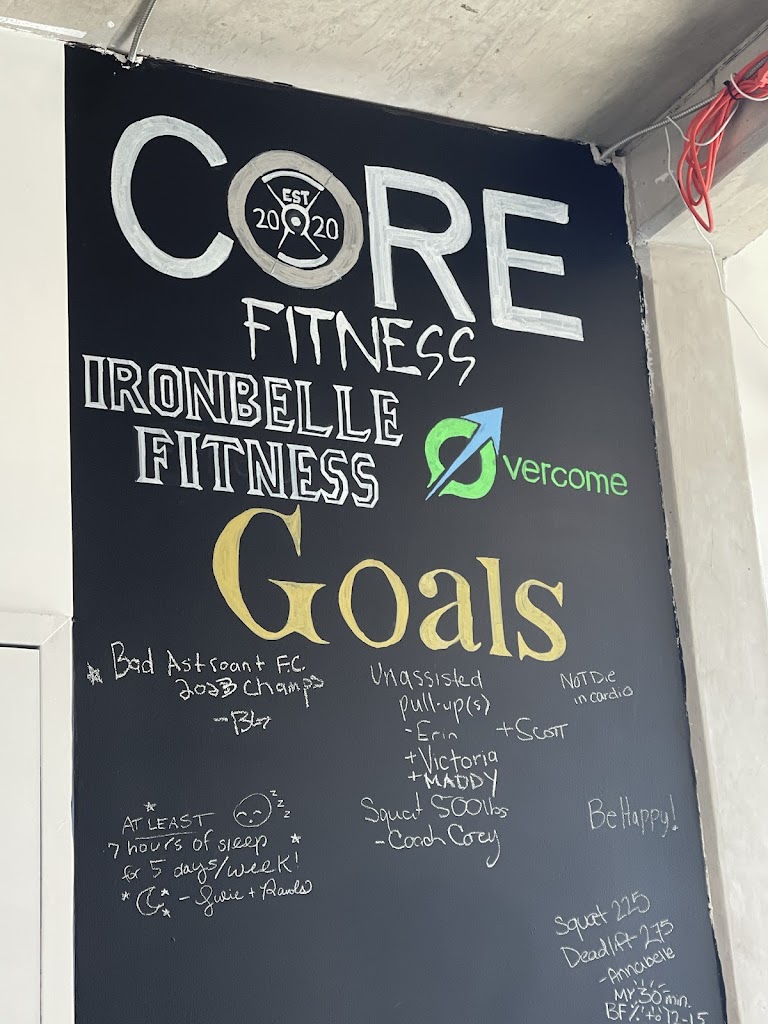 CORE
EST
2020
FITNESS
IRONBELLE
FITNESS
Overcome
Goals
Bad Astroant F.C.
2023 Champs
Unassisted
pull-up(s)
- Erin + SCOTT
+ Victoria
+ MADDY
NOT Die
in cardio
AT LEAST
7 hours of sleep
for 5 days/week!
zzz
Squat 500lbs
- Coach Corey
Be Happy!
Squat 225
Deadlift 275
- Annabelle
30 min.
BF% to 12-15